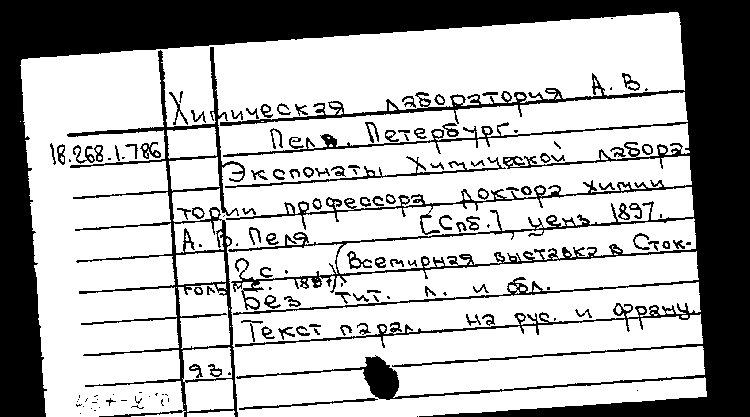 Химическая лаборатория А. В.
Пеля. Петербург.
18.268.1.786
Экспонаты Химической лабора-
тории профессора, доктора химии
А. В. Пеля. [Спб.], ценз. 1897.
2 с. (Всемирная выставка в Сток-
гольме. 1897).
Без тит. л. и обл.
Текст парал. на рус. и франц.
яз.